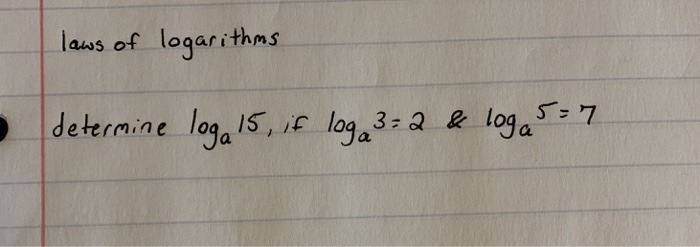 laws of logarithms
determine logₐ15, if logₐ3=2 & logₐ5=7